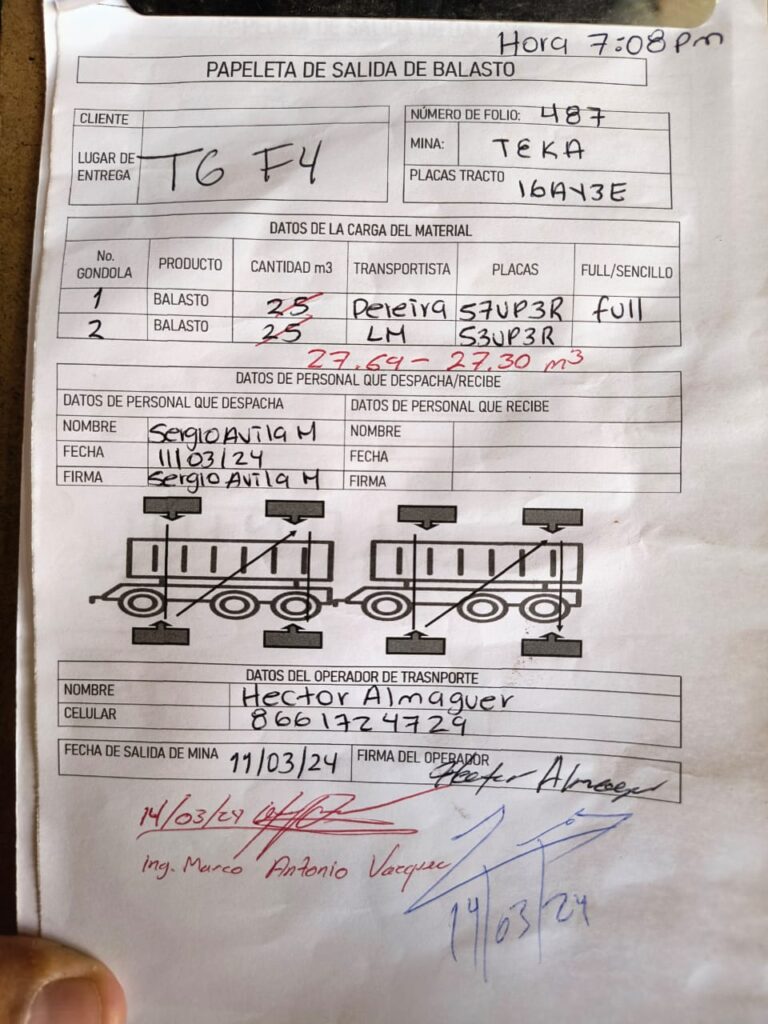 Hora 7:08 pm
PAPELETA DE SALIDA DE BALASTO
CLIENTE
LUGAR DE ENTREGA T6 F4
NÚMERO DE FOLIO: 487
MINA: TEKA
PLACAS TRACTO 16AY3E
DATOS DE LA CARGA DEL MATERIAL
No. GONDOLA PRODUCTO CANTIDAD m3 TRANSPORTISTA PLACAS FULL/SENCILLO
1 BALASTO 25 Pereira 57UP3R full
2 BALASTO 25 LM 53UP3R
27.69 - 27.30 m³
DATOS DE PERSONAL QUE DESPACHA/RECIBE
DATOS DE PERSONAL QUE DESPACHA DATOS DE PERSONAL QUE RECIBE
NOMBRE Sergio Avila M NOMBRE
FECHA 11/03/24 FECHA
FIRMA Sergio Avila M FIRMA
DATOS DEL OPERADOR DE TRASNPORTE
NOMBRE Hector Almaguer
CELULAR 8661724729
FECHA DE SALIDA DE MINA 11/03/24 FIRMA DEL OPERADOR Hector Almaguer
14/03/24
Ing. Marco Antonio Vazquez
14/03/24